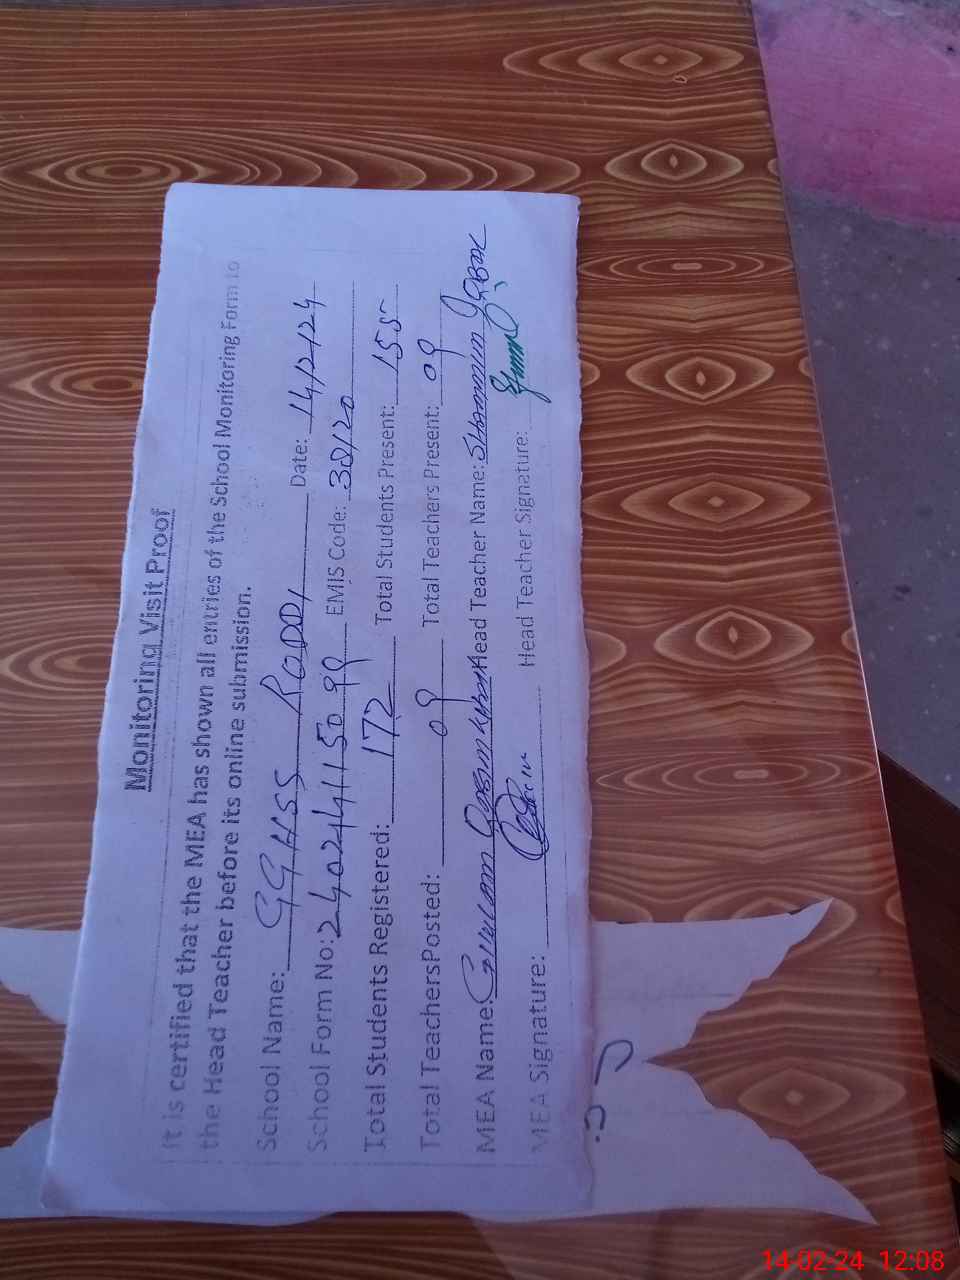 Monitoring Visit Proof
It is certified that the MEA has shown all entries of the School Monitoring Form to
the Head Teacher before its online submission.
School Name: GGHSS RODDI Date: 14/2/24
School Form No: 24024115099 EMIS Code: 38120
Total Students Registered: 172 Total Students Present: 155
Total TeachersPosted: 09 Total Teachers Present: 09
MEA Name: Head Teacher Name: SHamim
MEA Signature: Head Teacher Signature:
14-02-24 12:08